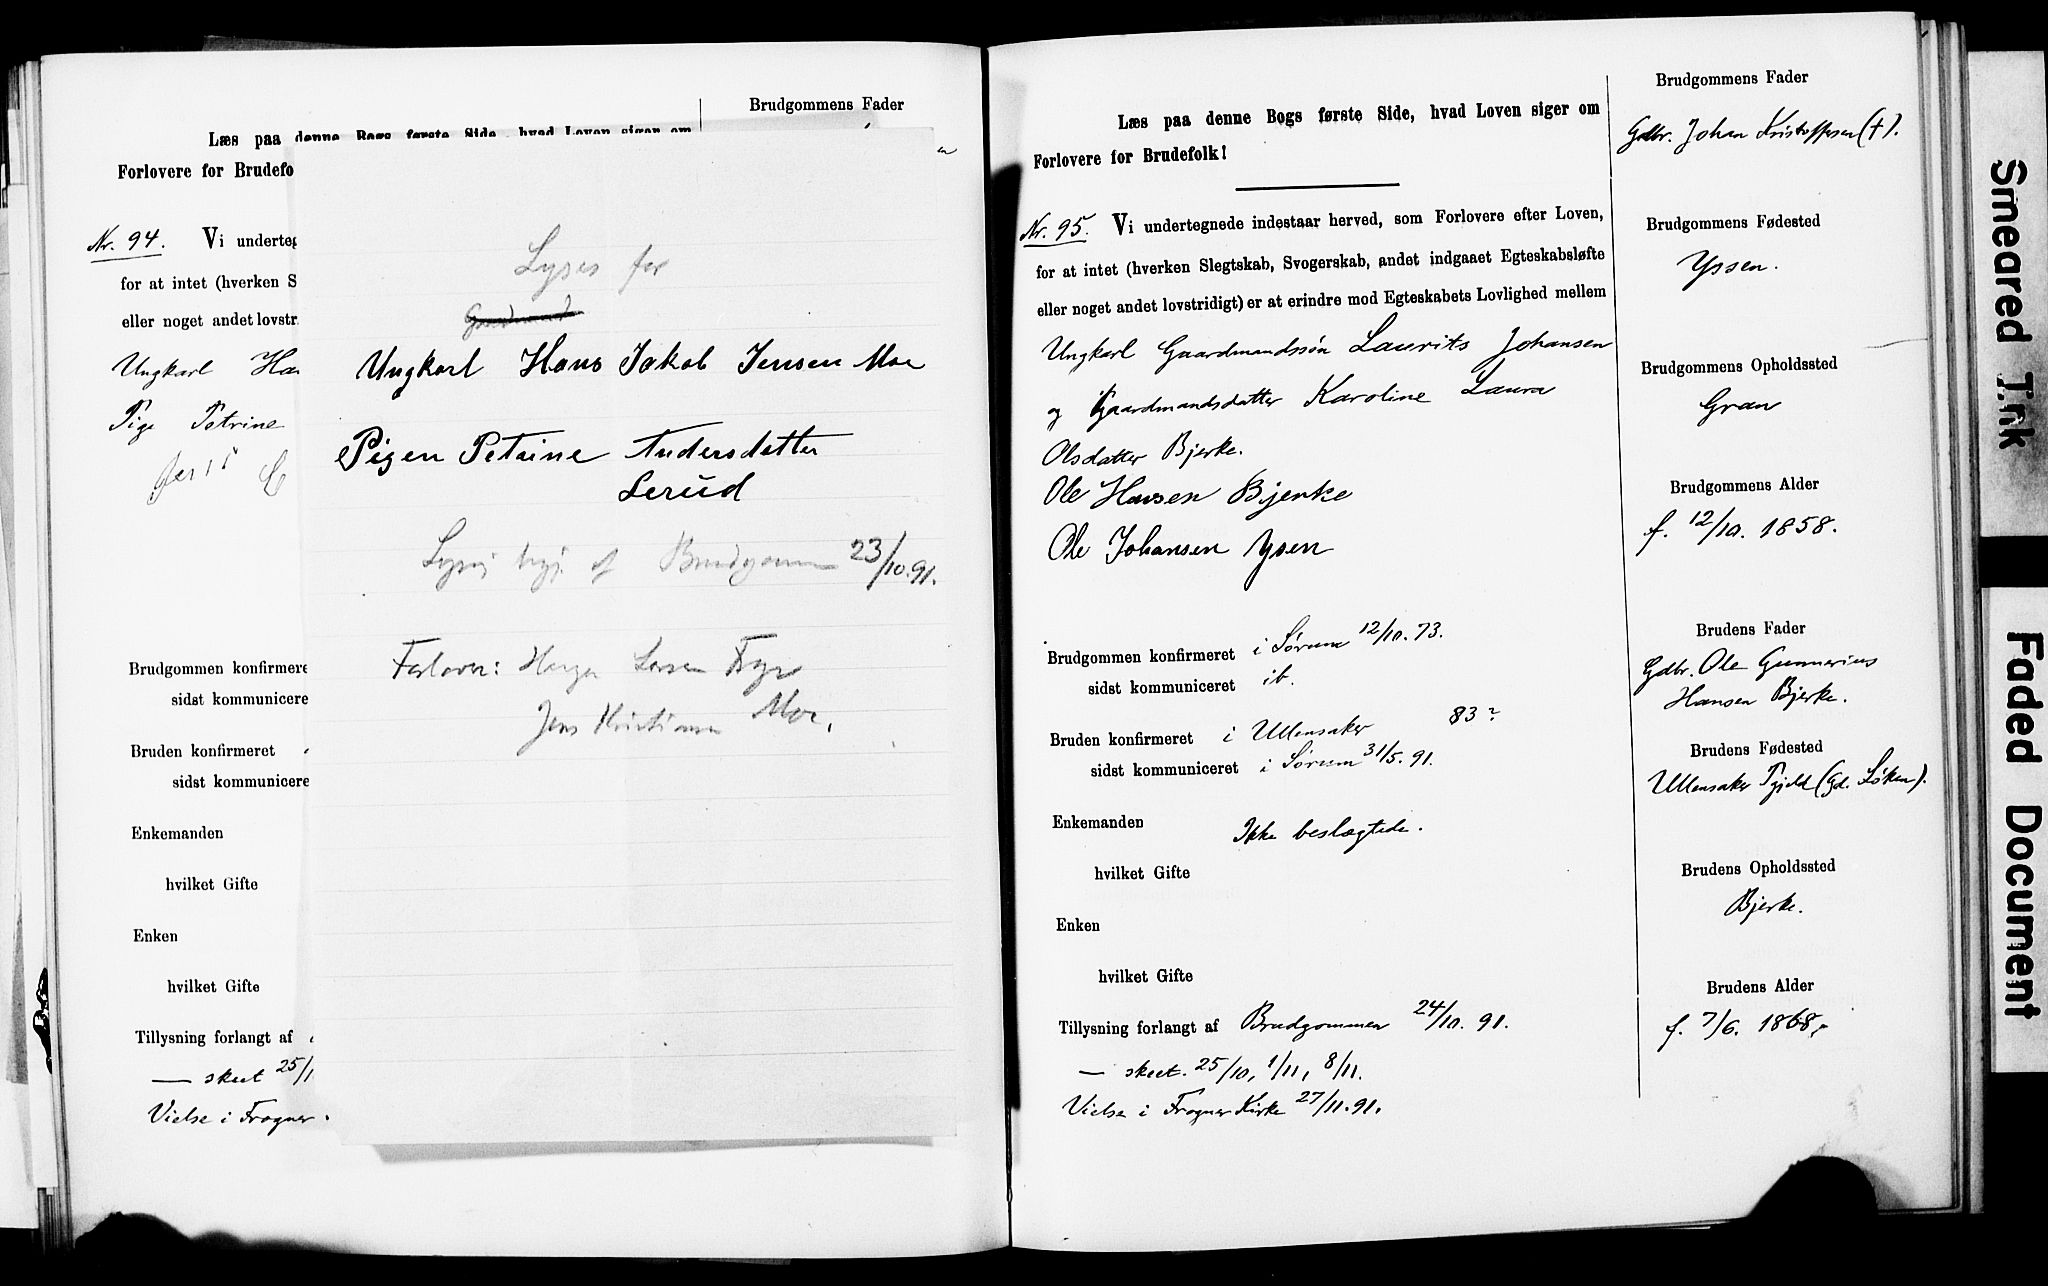 Brudgommens Fader
Læs paa denne Bogs første Side, hvad Loven siger om
Forlovere for Brudefo
Nr. 94. Vi underteg
for at intet (hverken S
eller noget andet lovstr
Ungkarl Ha
Pige Petrine
Brudgommen konfirmere
sidst kommunicere
Bruden konfirmeret
sidst kommunicere
Enkemanden
hvilket Gifte
Enken
hvilket Gifte
Tillysning forlangt af
— skeet 25/1
Vielse i Frogner
Lyses for
Ungkarl Hans Jakob Jensen Moe
Pigen Petrine Andersdatter
Lerud
Lysn. af Brudgommen 23/10.91.
Forlover: Larsen
Jens Kristiansen Moe.
Læs paa denne Bogs første Side, hvad Loven siger om
Forlovere for Brudefolk!
Nr. 95. Vi undertegnede indestaar herved, som Forlovere efter Loven,
for at intet (hverken Slegtskab, Svogerskab, andet indgaaet Egteskabsløfte
eller noget andet lovstridigt) er at erindre mod Egteskabets Lovlighed mellem
Ungkarl Gaardmandssøn Laurits Johansen
og Gaardmandsdatter Karoline Laura
Olsdatter Bjerke.
Ole Hansen Bjerke
Ole Johansen Ysen
Brudgommen konfirmeret i Sørum 12/10. 73.
sidst kommuniceret ib.
Bruden konfirmeret i Ullensaker 83?
sidst kommuniceret i Sørum 31/5. 91.
Enkemanden Ikke beslægtede.
hvilket Gifte
Enken
hvilket Gifte
Tillysning forlangt af Brudgommen 24/10. 91.
— skeet. 25/10, 1/11, 8/11.
Vielse i Frogner Kirke 27/11.91.
Brudgommens Fader
Gdbr. Johan Kristoffersen (†).
Brudgommens Fødested
Yssen.
Brudgommens Opholdssted
Gran
Brudgommens Alder
f. 12/10. 1858.
Brudens Fader
Gdbr. Ole Gunnerius
Hansen Bjerke.
Brudens Fødested
Ullensaker Pgjeld (Gd. Løken).
Brudens Opholdssted
Bjerke.
Brudens Alder
f. 7/6. 1868.
Smeared Ink
Faded Document